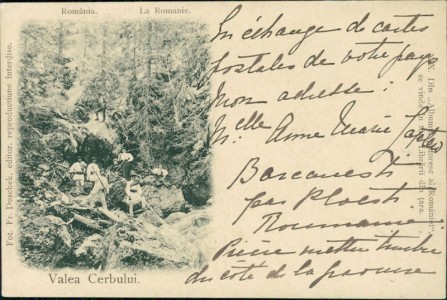 România.
La Romanie.
En échange de cartes
postales de votre pays
Mon adresse :
Mlle Anne Marie
Barcanesti
par Ploesti
Roumanie
Prière mettre timbre
du côté de la
Valea Cerbului.
Fot. Fr. Duschek, editor. reproductiune interdise.